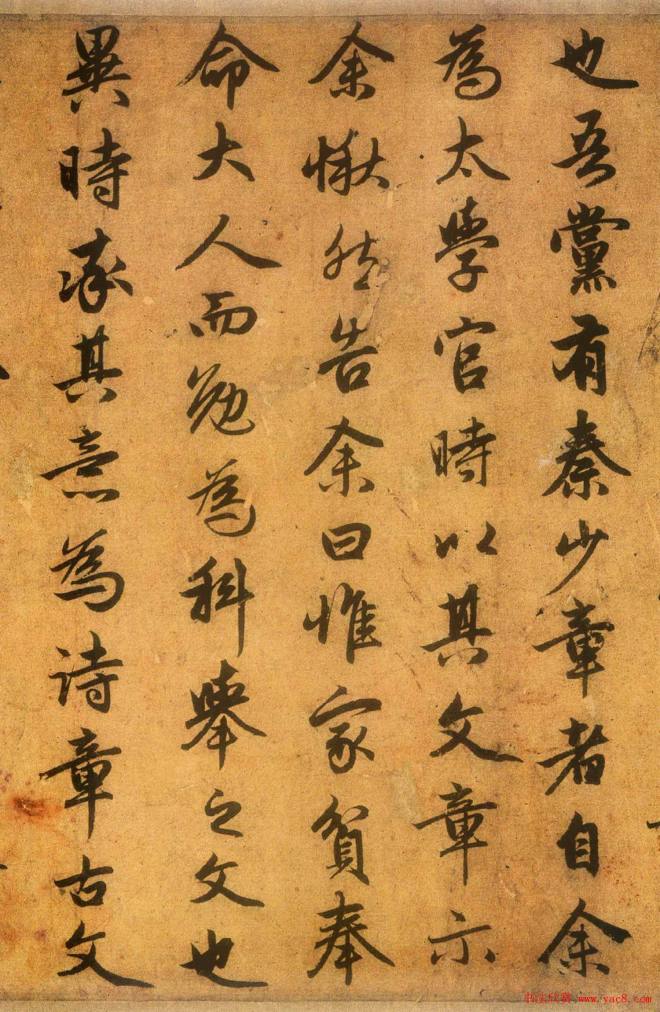 也吾黨有秦少章者自余
為太學官時以其文章示
余愀然告余曰惟家貧奉
命大人而勉為科舉之文也
異時率其意為詩章古文
www.yac8.com